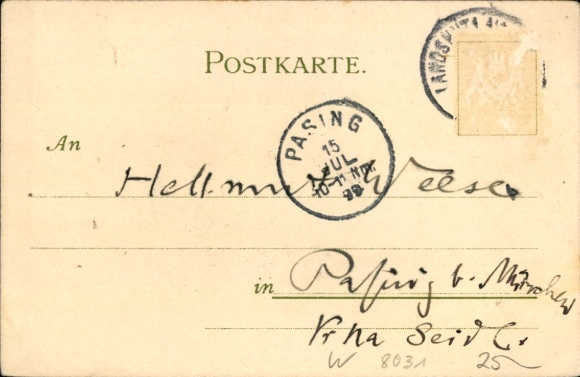 POSTKARTE.
LANDSHUT
PASING
15
JUL
10-11 Nm.
98
An
Hellmut Weese
in Pasing b. München
Seidl
W 8031 25